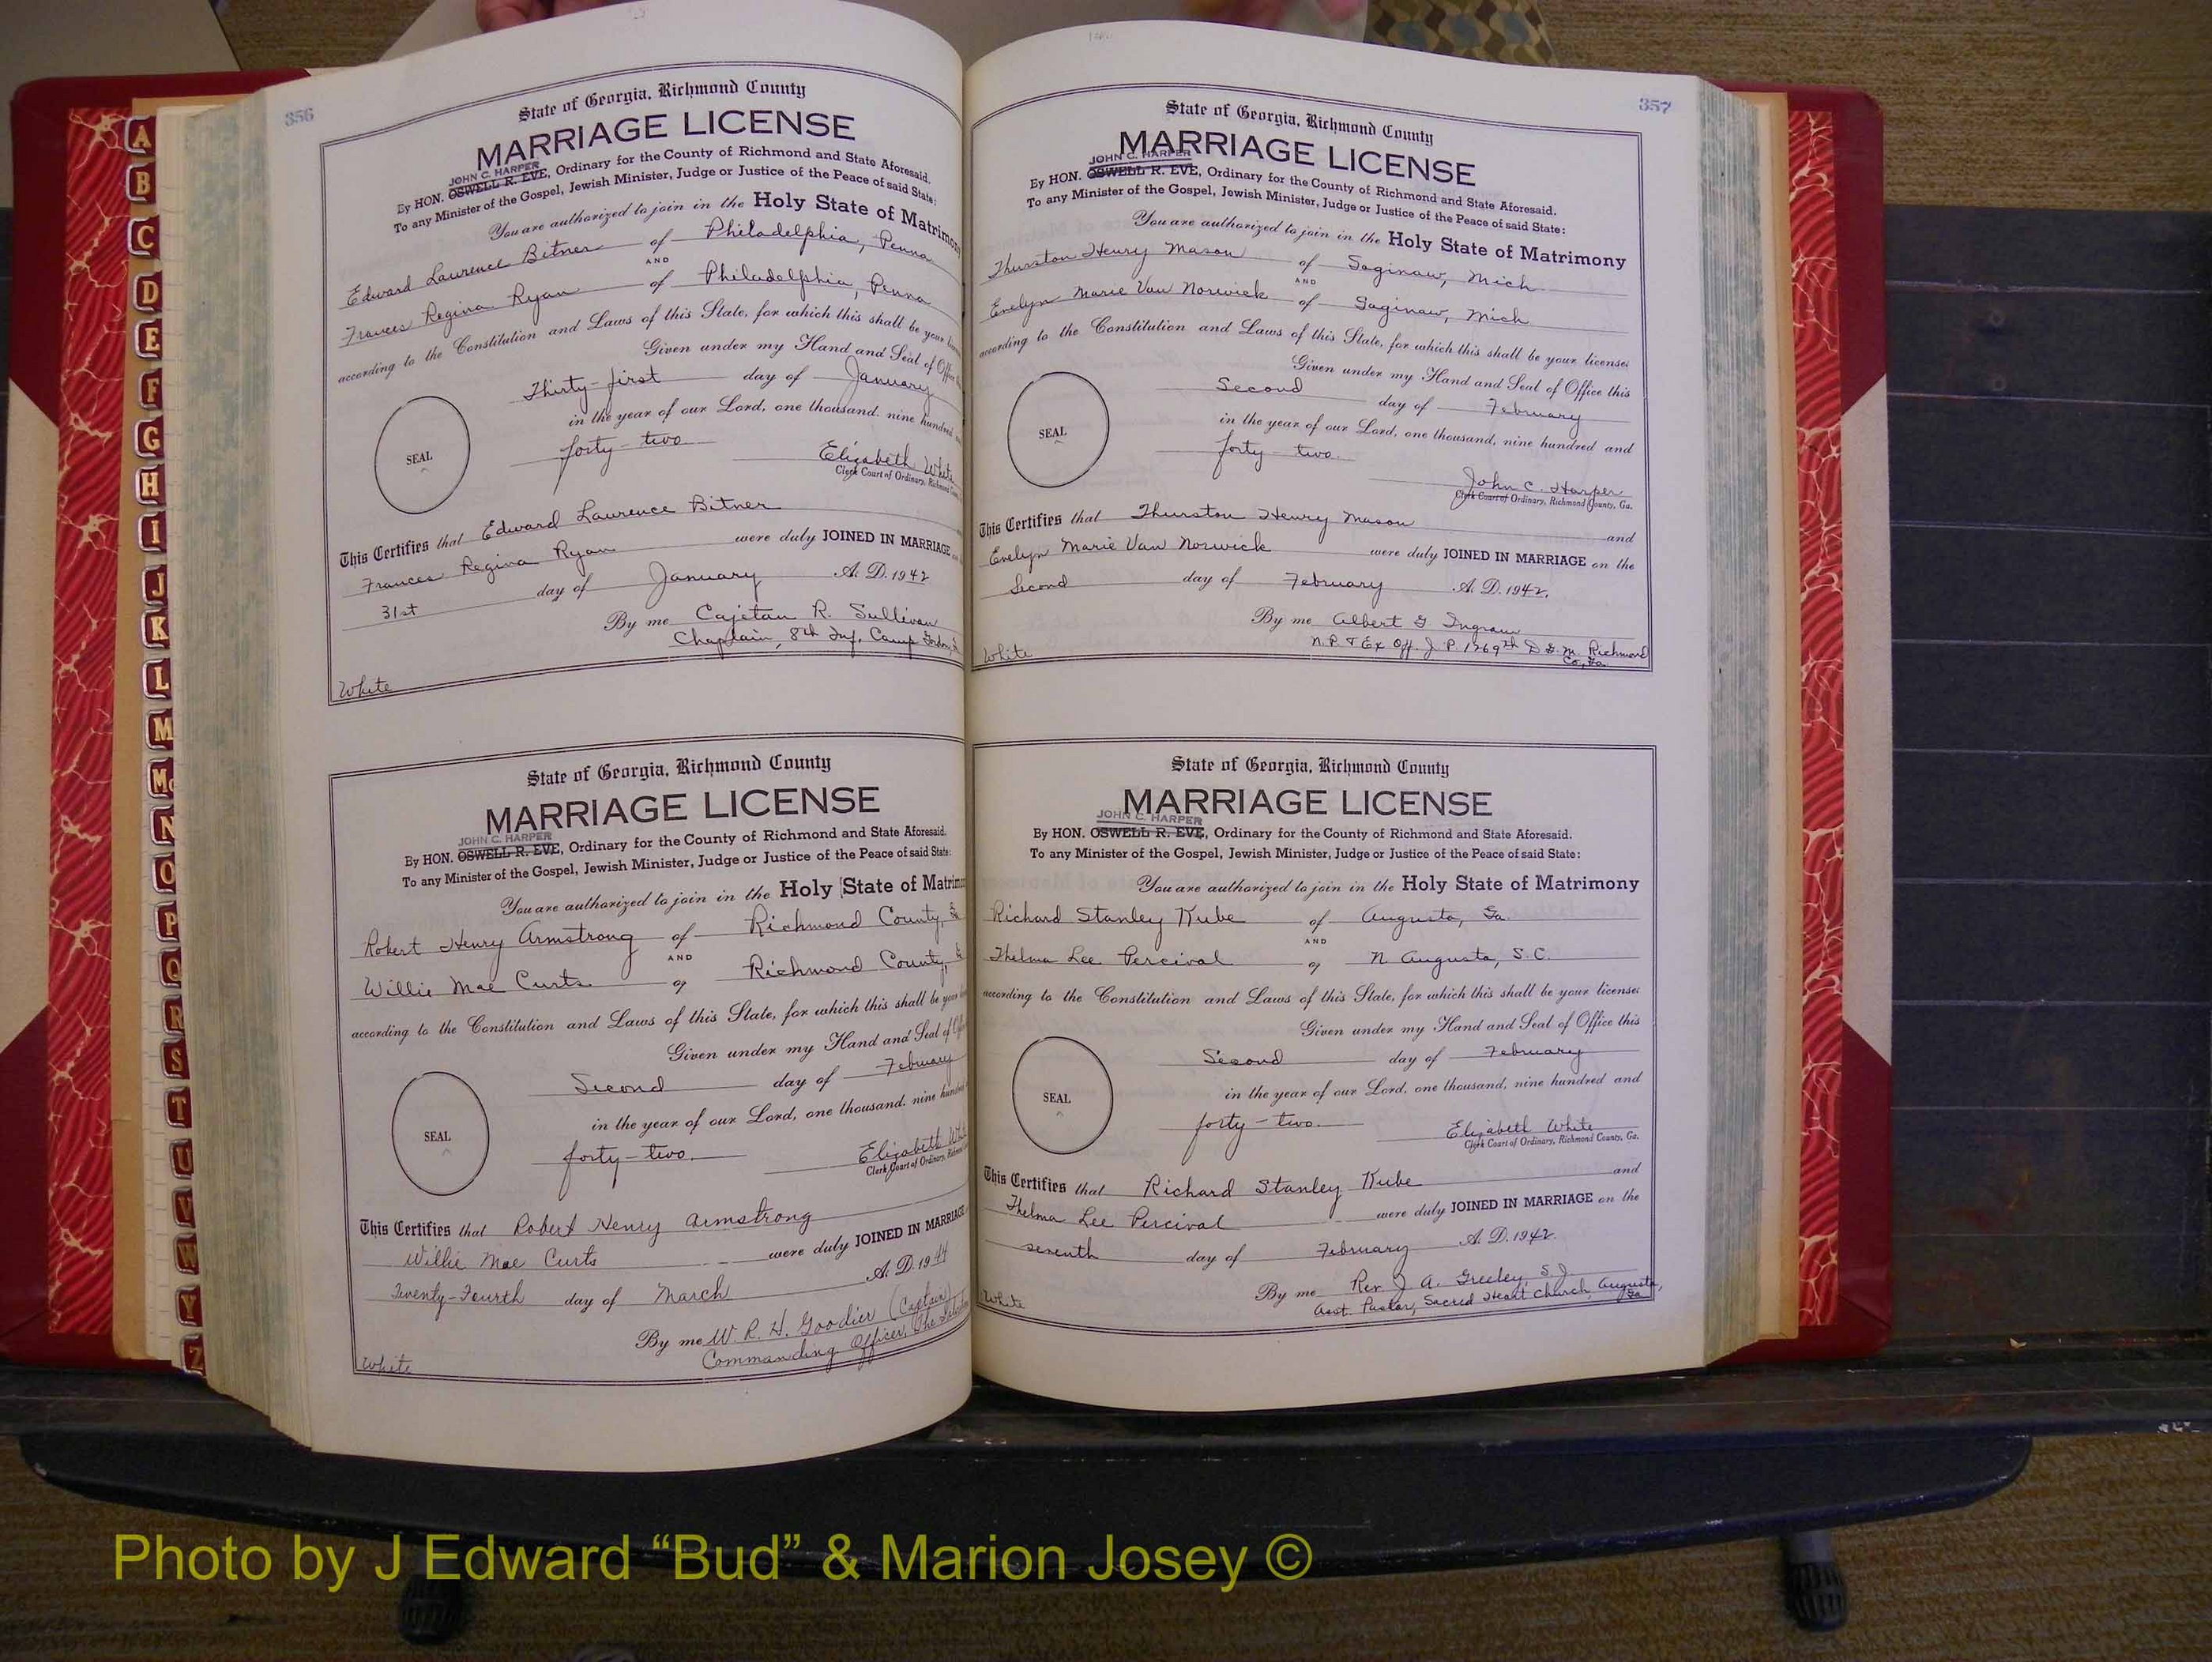 356
State of Georgia, Richmond County
MARRIAGE LICENSE
JOHN C. HARPER
By HON. OSWELL R. EVE, Ordinary for the County of Richmond and State Aforesaid.
To any Minister of the Gospel, Jewish Minister, Judge or Justice of the Peace of said State:
You are authorized to join in the Holy State of Matrimony
Edward Laurence Bitner of Philadelphia, Penna
AND
Frances Regina Ryan of Philadelphia, Penna
according to the Constitution and Laws of this State, for which this shall be your
Given under my Hand and Seal of Office
Thirty-first day of January
in the year of our Lord, one thousand, nine hundred
forty-two
Elizabeth White
SEAL
Clerk Court of Ordinary, Richmond
This Certifies that Edward Laurence Bitner
Frances Regina Ryan were duly JOINED IN MARRIAGE
31st day of January A. D. 1942
By me Cajetan R. Sullivan
Chaplain, 8th Inf, Camp Gordon,
White
State of Georgia, Richmond County
MARRIAGE LICENSE
JOHN C. HARPER
By HON. OSWELL R. EVE, Ordinary for the County of Richmond and State Aforesaid.
To any Minister of the Gospel, Jewish Minister, Judge or Justice of the Peace of said State:
You are authorized to join in the Holy State of Matrim
Robert Henry Armstrong of Richmond County,
AND
Willie Mae Curts of Richmond County,
according to the Constitution and Laws of this State, for which this shall be your
Given under my Hand and Seal of
Second day of February
in the year of our Lord, one thousand, nine hundred
forty-two.
Elizabeth
SEAL
Clerk Court of Ordinary,
This Certifies that Robert Henry Armstrong
Willie Mae Curts were duly JOINED IN MARRIAGE
Twenty-Fourth day of March A. D. 1944
By me W. R. H. Goodier (Captain)
Commanding Officer, The
White
357
State of Georgia, Richmond County
MARRIAGE LICENSE
JOHN C. HARPER
By HON. OSWELL R. EVE, Ordinary for the County of Richmond and State Aforesaid.
To any Minister of the Gospel, Jewish Minister, Judge or Justice of the Peace of said State:
You are authorized to join in the Holy State of Matrimony
Thurston Henry Mason of Saginaw, Mich
AND
Evelyn Marie Van Norwick of Saginaw, Mich
according to the Constitution and Laws of this State, for which this shall be your license:
Given under my Hand and Seal of Office this
Second day of February
in the year of our Lord, one thousand, nine hundred and
forty-two.
John C. Harper
SEAL
Clerk Court of Ordinary, Richmond County, Ga.
This Certifies that Thurston Henry Mason and
Evelyn Marie Van Norwick were duly JOINED IN MARRIAGE on the
Second day of February A. D. 1942.
By me Albert G Ingram
N.P. & Ex Off. J. P. 1269th D G. M. Richmond
Co, Ga.
White
State of Georgia, Richmond County
MARRIAGE LICENSE
JOHN C. HARPER
By HON. OSWELL R. EVE, Ordinary for the County of Richmond and State Aforesaid.
To any Minister of the Gospel, Jewish Minister, Judge or Justice of the Peace of said State:
You are authorized to join in the Holy State of Matrimony
Richard Stanley Kube of Augusta, Ga.
AND
Thelma Lee Percival of N. Augusta, S.C.
according to the Constitution and Laws of this State, for which this shall be your license:
Given under my Hand and Seal of Office this
Second day of February
in the year of our Lord, one thousand, nine hundred and
forty-two.
Elizabeth White
SEAL
Clerk Court of Ordinary, Richmond County, Ga.
This Certifies that Richard Stanley Kube and
Thelma Lee Percival were duly JOINED IN MARRIAGE on the
seventh day of February A. D. 1942.
By me Rev J A. Greeley, S.J.
Asst. Pastor, Sacred Heart Church, Augusta,
Ga
White
A
B
C
D
E
F
G
H
I
J
K
L
M
Mc
N
O
P
Q
R
S
T
U
V
W
Y
Z
Photo by J Edward “Bud” & Marion Josey ©